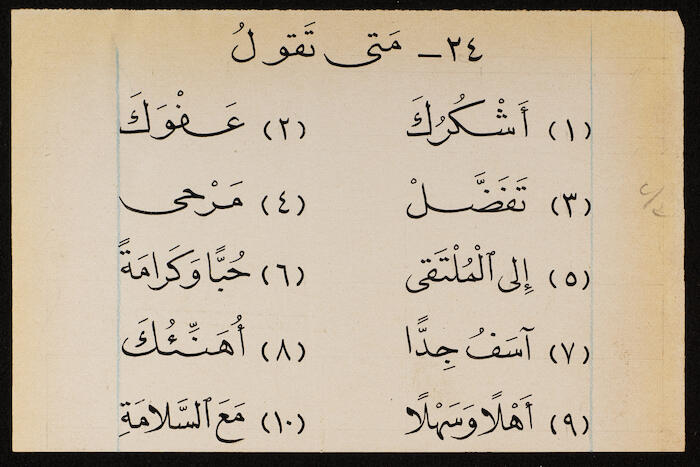 ٢٤ـ مَتى تَقولُ
(١) أَشْكُرُكَ (٢) عَـفْوَكَ
(٣) تَفَضَّـلْ (٤) مَـرْحى
(٥) إِلى ٱلْمُلْتَقى (٦) حُبًّا وَكَرامَةً
(٧) آسَفُ جِدًّا (٨) أُهَـنِّـئُـكَ
(٩) أَهْلًا وَسَهْلًا (١٠) مَعَ ٱلسَّلامَةِ